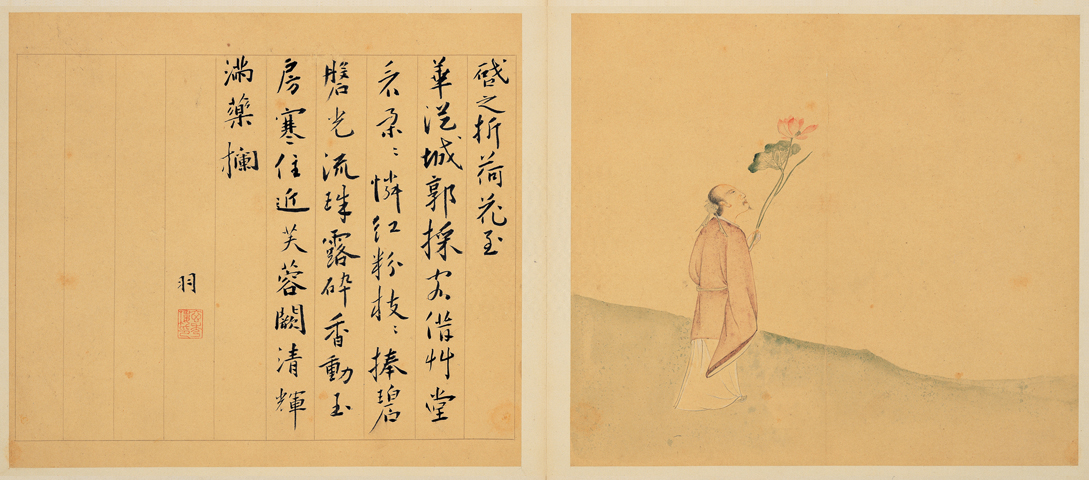 啟之折荷花至
華從城郭採客借艸堂
看朵〻憐紅粉枝〻捧碧
磐光流珠露碎香動玉
房寒住近芙蓉闕清輝
滿藥欄
羽